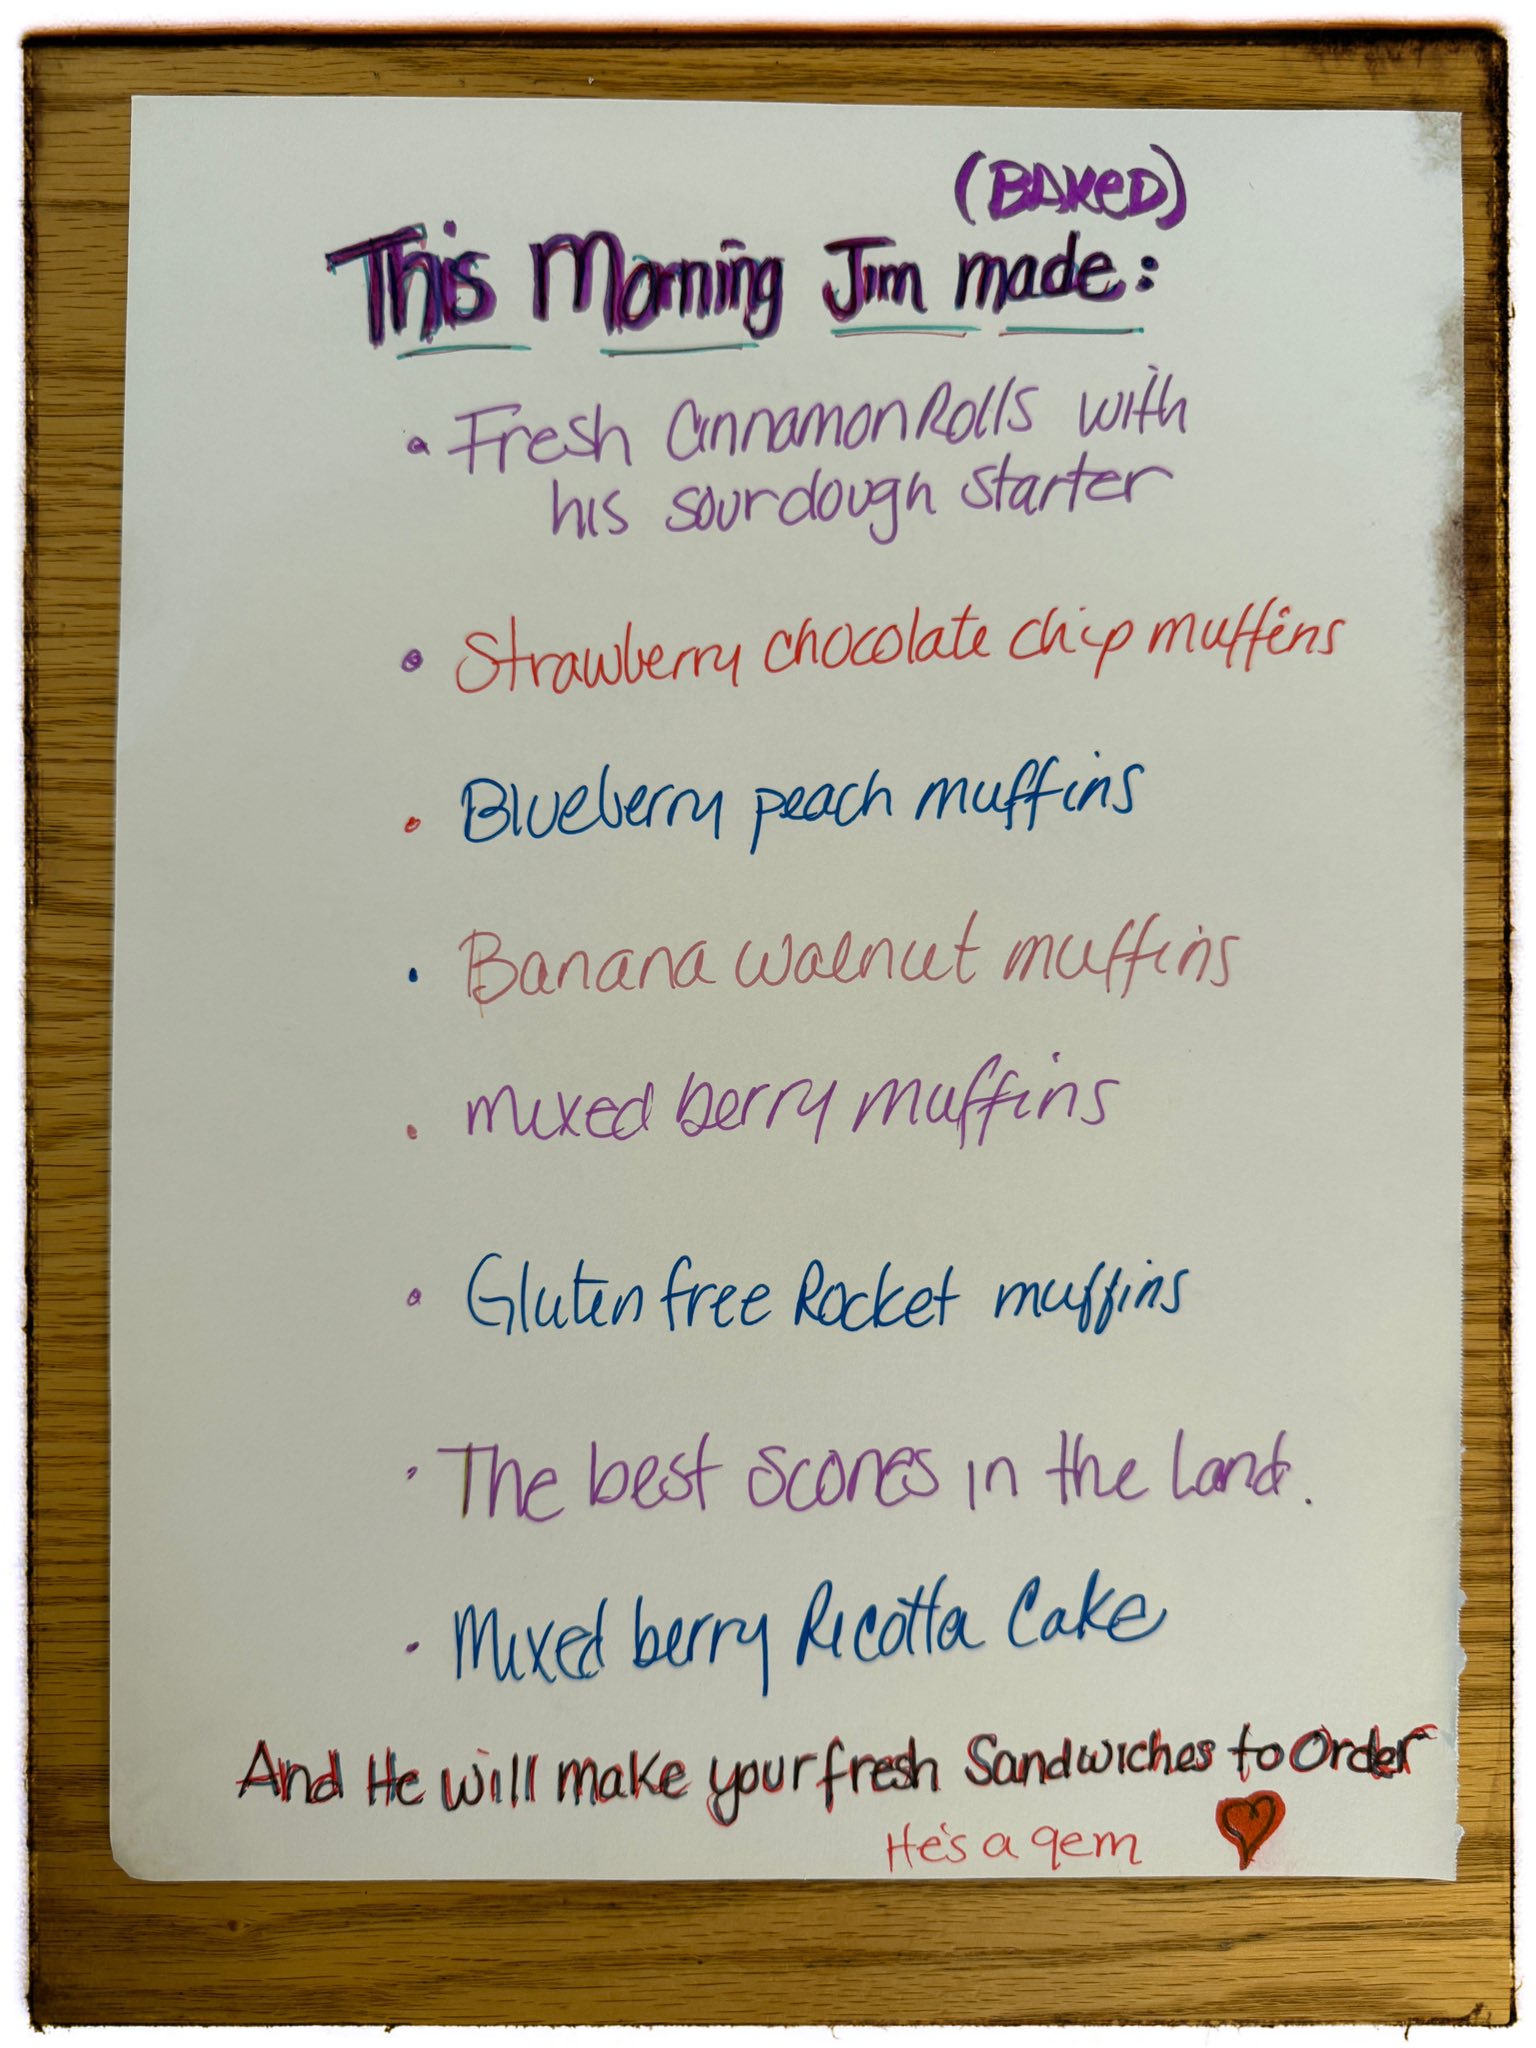 (BAKeD)
This Morning Jim made:
• Fresh Cinnamon Rolls with
his sourdough starter
• Strawberry chocolate chip muffins
• Blueberry peach muffins
• Banana walnut muffins
• mixed berry muffins
• Gluten free Rocket muffins
• The best scones in the Land.
• Mixed berry Ricotta Cake
And He will make your fresh Sandwiches to Order
He's a gem